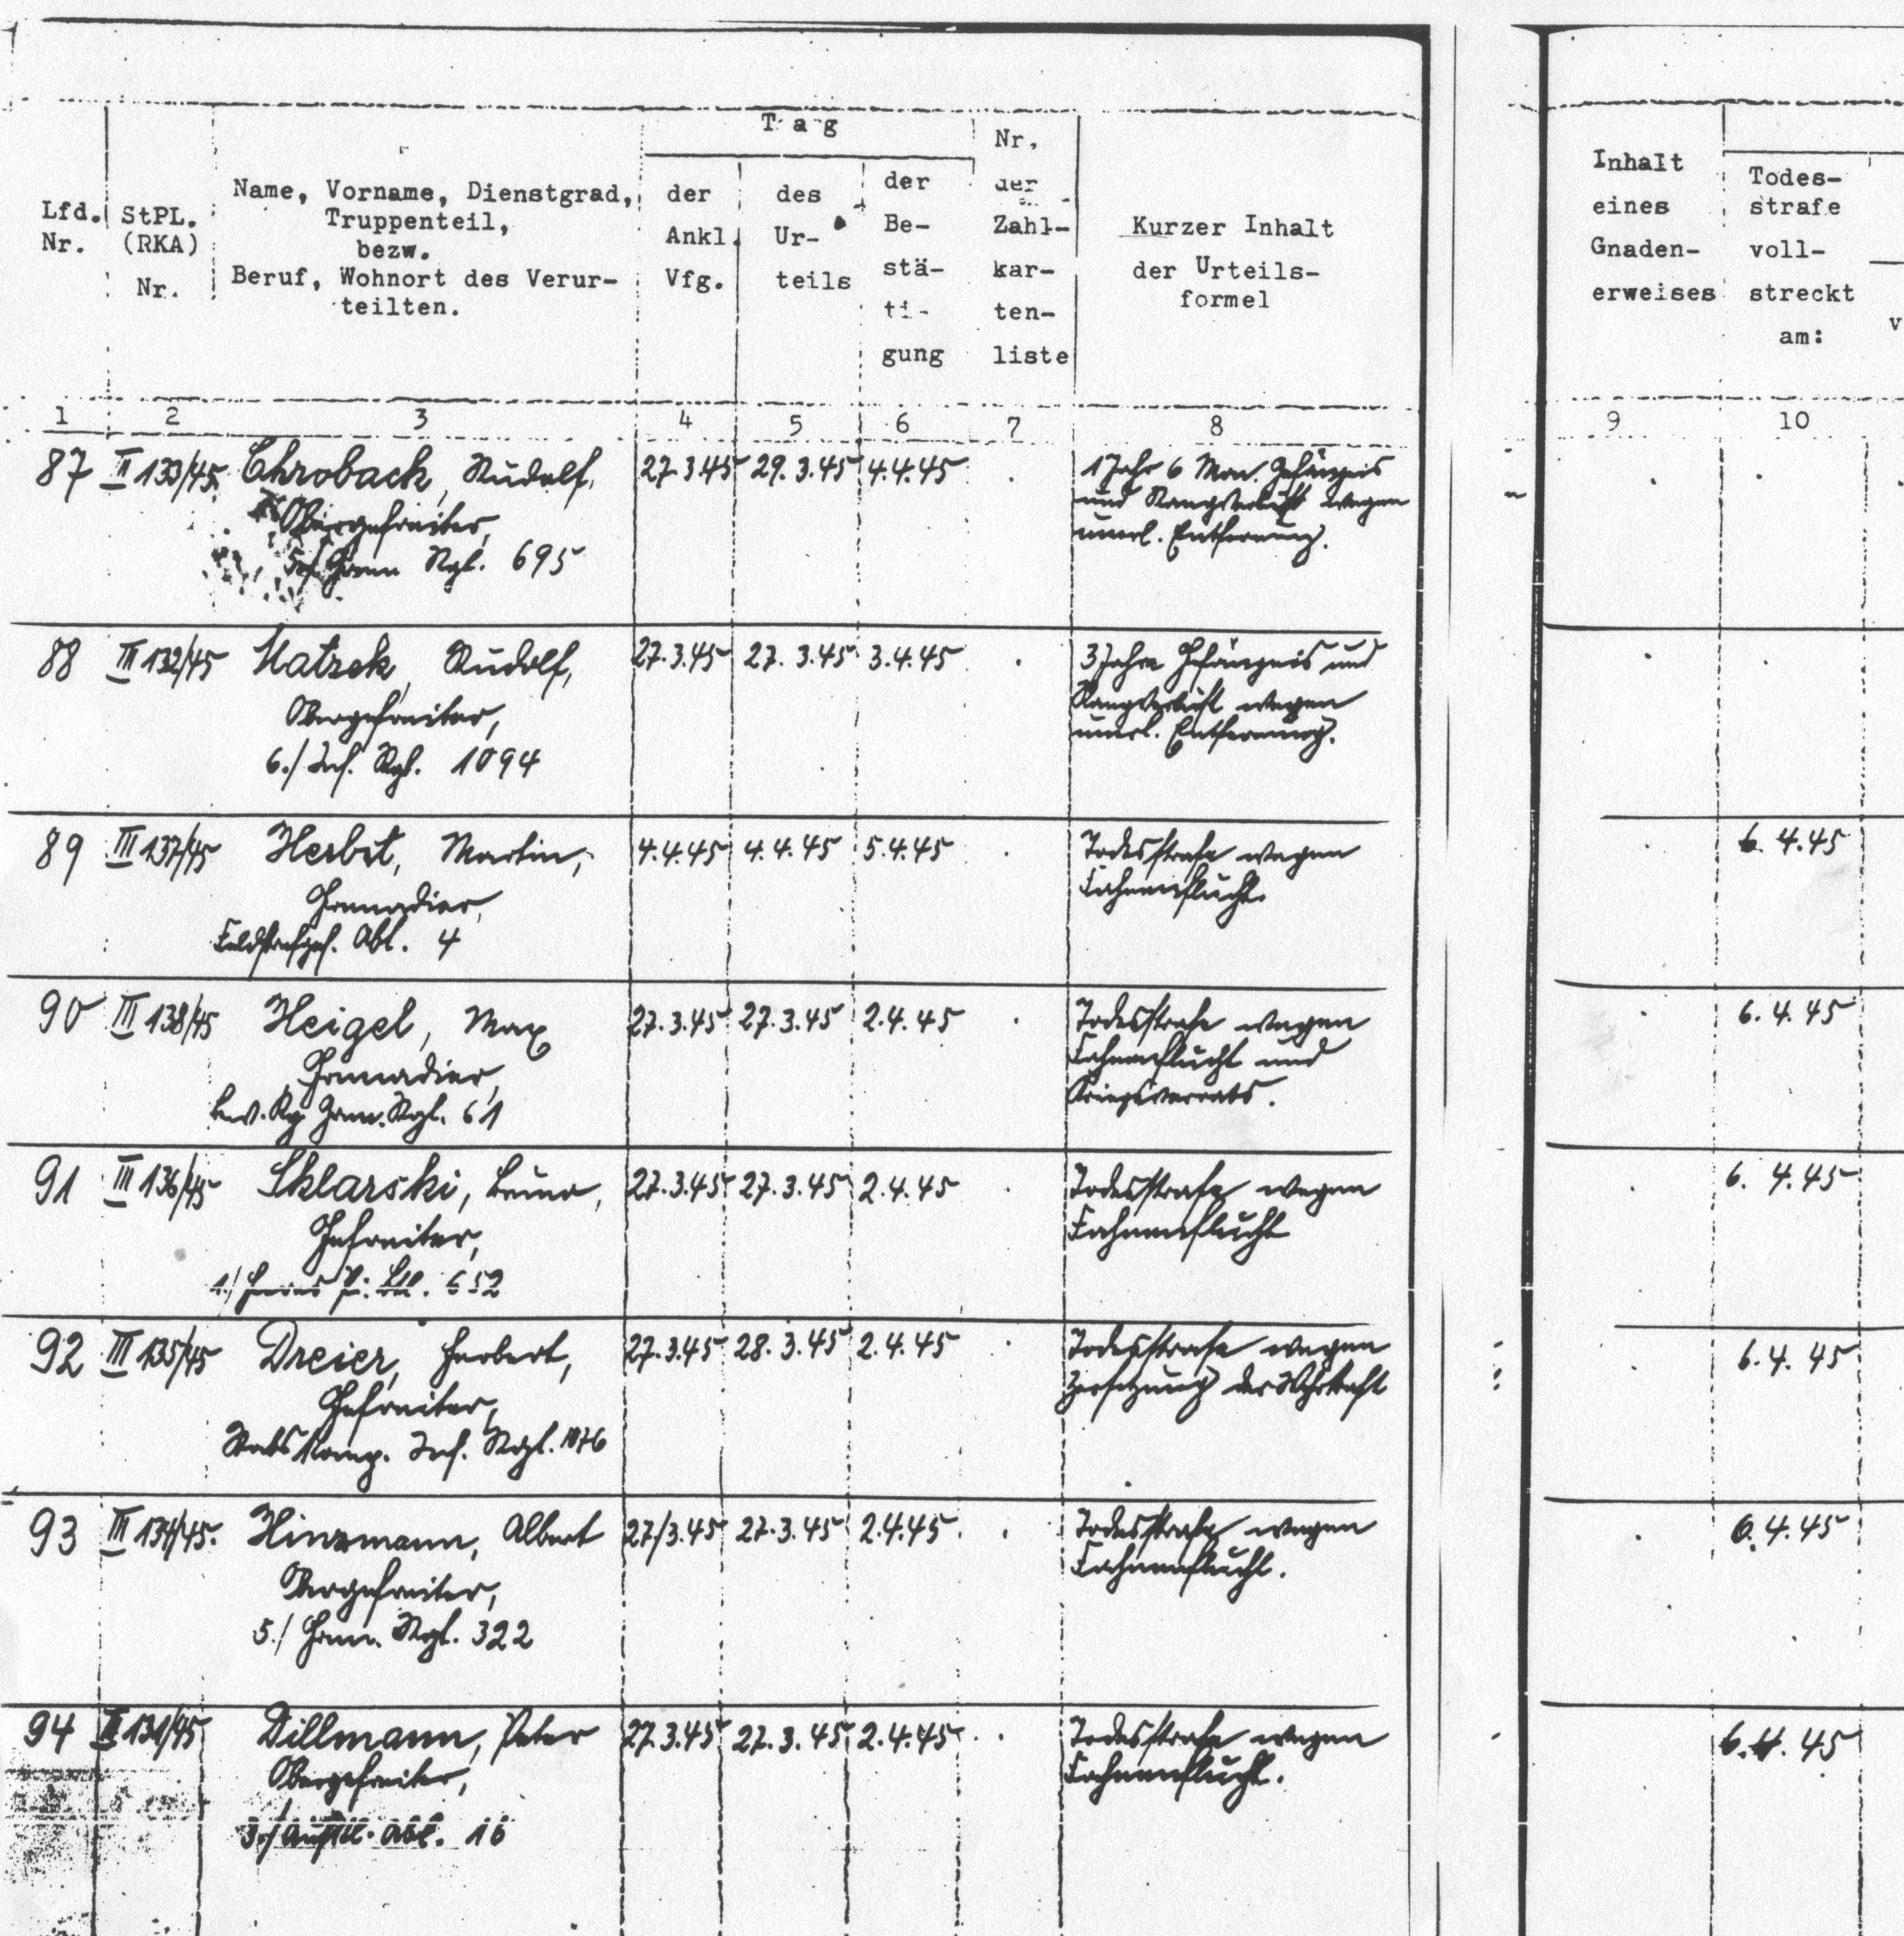 Tag
Nr.
Lfd. Nr.
StPL. (RKA) Nr.
Name, Vorname, Dienstgrad,
Truppenteil,
bezw.
Beruf, Wohnort des Verur-
teilten.
der Ankl. Vfg.
des Ur- teils
der Be- stä- ti- gung
der Zahl- kar- ten- liste
Kurzer Inhalt
der Urteils-
formel
Inhalt
eines
Gnaden-
erweises
Todes-
strafe
voll-
streckt
am:
v
1 2 3 4 5 6 7 8 9 10
87 133/45. Chroback, Rudolf, 27.3.45 29.3.45 4.4.45 1 Jahr 6 Mon. Gefängnis
Obergefreiter, und Rangverlust wegen
Gren Rgt. 695 unerl. Entfernung.
88 III 132/45 Matzek, Rudolf, 27.3.45 27.3.45 3.4.45 3 Jahre Gefängnis und
Obergefreiter, Rangverlust wegen
6./ Inf. Rgt. 1094 unerl. Entfernung.
89 III 137/45 Herbst, Martin, 4.4.45 4.4.45 5.4.45 Todesstrafe wegen 6. 4.45
Grenadier, Fahnenflucht.
Feldstrafgef. Abt. 4
90 III 138/45 Heigel, Max 27.3.45 27.3.45 2.4.45 Todesstrafe wegen 6.4.45
Grenadier, Fahnenflucht und
Gren. Rgt. 61 Kriegsverrats.
91 III 136/45 Sklarski, Bruno, 27.3.45 27.3.45 2.4.45 Todesstrafe wegen 6. 4.45
Gefreiter, Fahnenflucht
1./ Heeres Pi. Btl. 652
92 III 135/45 Dreier, Herbert, 27.3.45 28.3.45 2.4.45 Todesstrafe wegen 6.4.45
Gefreiter, Zersetzung der Wehrkraft
Stabs Komp. Inf. Rgt. 1076
93 III 134/45. Hinzmann, Albert 27/3.45 27.3.45 2.4.45 Todesstrafe wegen 6.4.45
Obergefreiter, Fahnenflucht.
5./ Gren. Rgt. 322
94 131/45 Dillmann, Peter 27.3.45 27.3.45 2.4.45 Todesstrafe wegen 6.4.45
Obergefreiter, Fahnenflucht.
Abt. 16